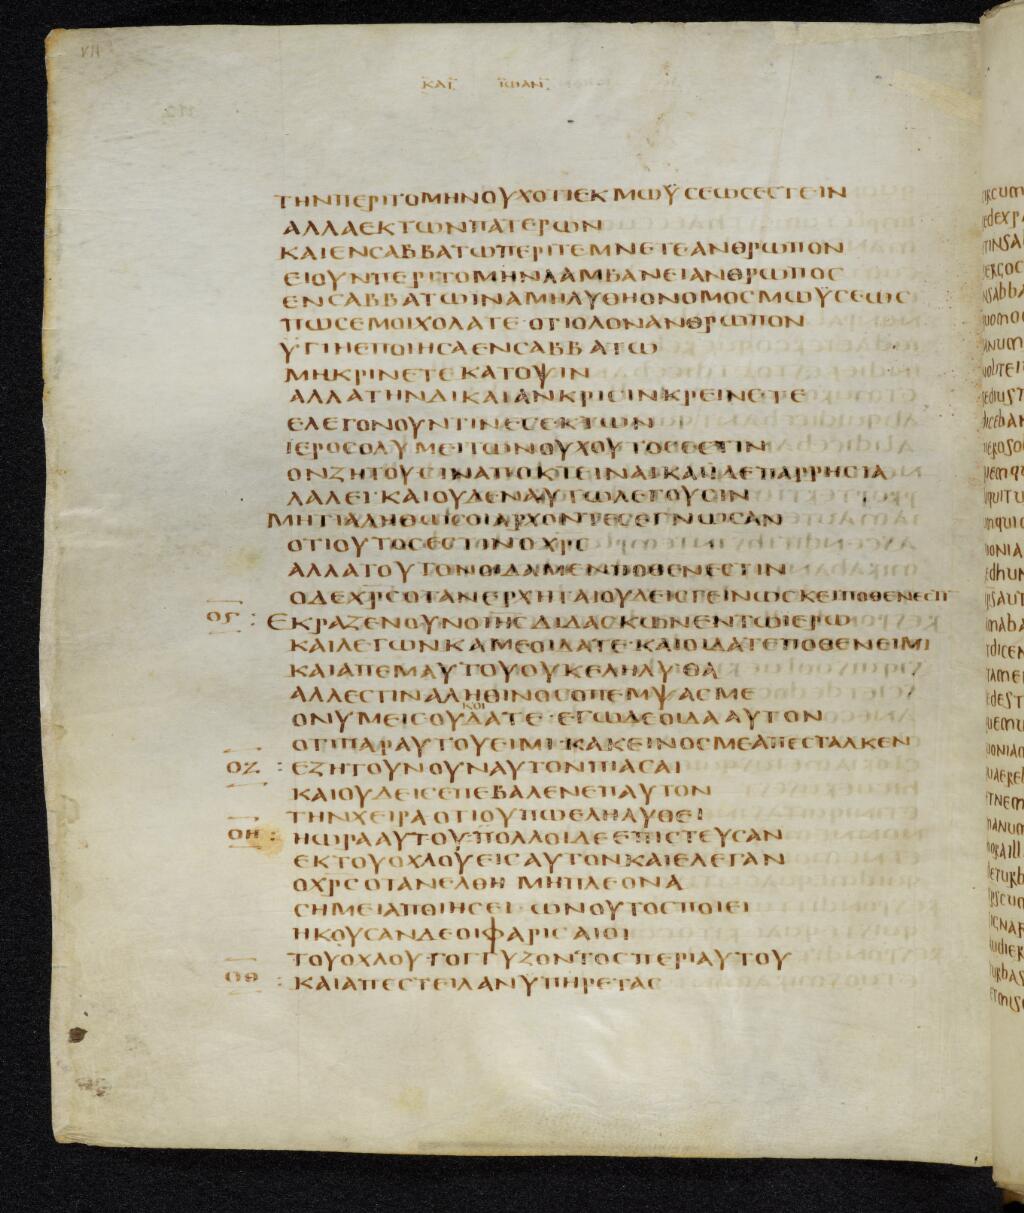 ΚΑΤ ΙΩΑΝ
ΤΗΝΠΕΡΙΤΟΜΗΝΟΥΧΟΤΙΕΚΜΩΫΣΕΩΣΕΣΤΕΙΝ
ΑΛΛΑΕΚΤΩΝΠΑΤΕΡΩΝ
ΚΑΙΕΝΣΑΒΒΑΤΩΠΕΡΙΤΕΜΝΕΤΕΑΝΘΡΩΠΟΝ
ΕΙΟΥΝΠΕΡΙΤΟΜΗΝΛΑΜΒΑΝΕΙΑΝΘΡΩΠΟΣ
ΕΝΣΑΒΒΑΤΩΙΝΑΜΗΛΥΘΗΟΝΟΜΟΣΜΩΫΣΕΩΣ
ΠΩΣΕΜΟΙΧΟΛΑΤΕ·ΟΤΙΟΛΟΝΑΝΘΡΩΠΟΝ
ΫΓΙΗΕΠΟΙΗΣΑΕΝΣΑΒΒΑΤΩ
ΜΗΚΡΙΝΕΤΕΚΑΤΟΨΙΝ
ΑΛΛΑΤΗΝΔΙΚΑΙΑΝΚΡΙΣΙΝΚΡΕΙΝΕΤΕ
ΕΛΕΓΟΝΟΥΝΤΙΝΕΣΕΚΤΩΝ
ΙΕΡΟΣΟΛΥΜΕΙΤΩΝΟΥΧΟΥΤΟΣΕΣΤΙΝ
ΟΝΖΗΤΟΥΣΙΝΑΠΟΚΤΕΙΝΑΙΚΑΙΪΔΕΠΑΡΡΗΣΙΑ
ΛΑΛΕΙ·ΚΑΙΟΥΔΕΝΑΥΤΩΛΕΓΟΥΣΙΝ
ΜΗΤΙΑΛΗΘΩΣΟΙΑΡΧΟΝΤΕΣΕΓΝΩΣΑΝ
ΟΤΙΟΥΤΟΣΕΣΤΙΝΟΧΡΣ
ΑΛΛΑΤΟΥΤΟΝΟΙΔΑΜΕΝΠΟΘΕΝΕΣΤΙΝ
ΟΔΕΧΡΣΟΤΑΝΕΡΧΗΤΑΙΟΥΔΕΙΣΓΕΙΝΩΣΚΕΙΠΟΘΕΝΕΣΤΙ
ΟϚ : ΕΚΡΑΖΕΝΟΥΝΟΙΗΣΔΙΔΑΣΚΩΝΕΝΤΩΙΕΡΩ
ΚΑΙΛΕΓΩΝΚΑΜΕΟΙΔΑΤΕ·ΚΑΙΟΙΔΑΤΕΠΟΘΕΝΕΙΜΙ
ΚΑΙΑΠΕΜΑΥΤΟΥΟΥΚΕΛΗΛΥΘΑ
ΑΛΛΕΣΤΙΝΑΛΗΘΙΝΟΣΟΠΕΜΨΑΣΜΕ
ΟΝΥΜΕΙΣΟΥΔΑΤΕ·ΕΓΩΔΕΟΙΔΑΑΥΤΟΝ
ΟΤΙΠΑΡΑΥΤΟΥΕΙΜΙ·ΚΑΚΕΙΝΟΣΜΕΑΠΕΣΤΑΛΚΕΝ
ΟΖ : ΕΖΗΤΟΥΝΟΥΝΑΥΤΟΝΠΙΑΣΑΙ
ΚΑΙΟΥΔΕΙΣΕΠΕΒΑΛΕΝΕΠΑΥΤΟΝ
ΤΗΝΧΕΙΡΑΟΤΙΟΥΠΩΕΛΗΛΥΘΕΙ
ΟΗ : ΗΩΡΑΑΥΤΟΥ·ΠΟΛΛΟΙΔΕΕΠΙΣΤΕΥΣΑΝ
ΕΚΤΟΥΟΧΛΟΥΕΙΣΑΥΤΟΝΚΑΙΕΛΕΓΑΝ
ΟΧΡΣΟΤΑΝΕΛΘΗ ΜΗΠΛΕΟΝΑ
ΣΗΜΕΙΑΠΟΙΗΣΕΙ ΩΝΟΥΤΟΣΠΟΙΕΙ
ΗΚΟΥΣΑΝΔΕΟΙΦΑΡΙΣΑΙΟΙ
ΤΟΥΟΧΛΟΥΓΟΓΓΥΖΟΝΤΟΣΠΕΡΙΑΥΤΟΥ
ΟΘ : ΚΑΙΑΠΕΣΤΕΙΛΑΝΥΠΗΡΕΤΑΣ